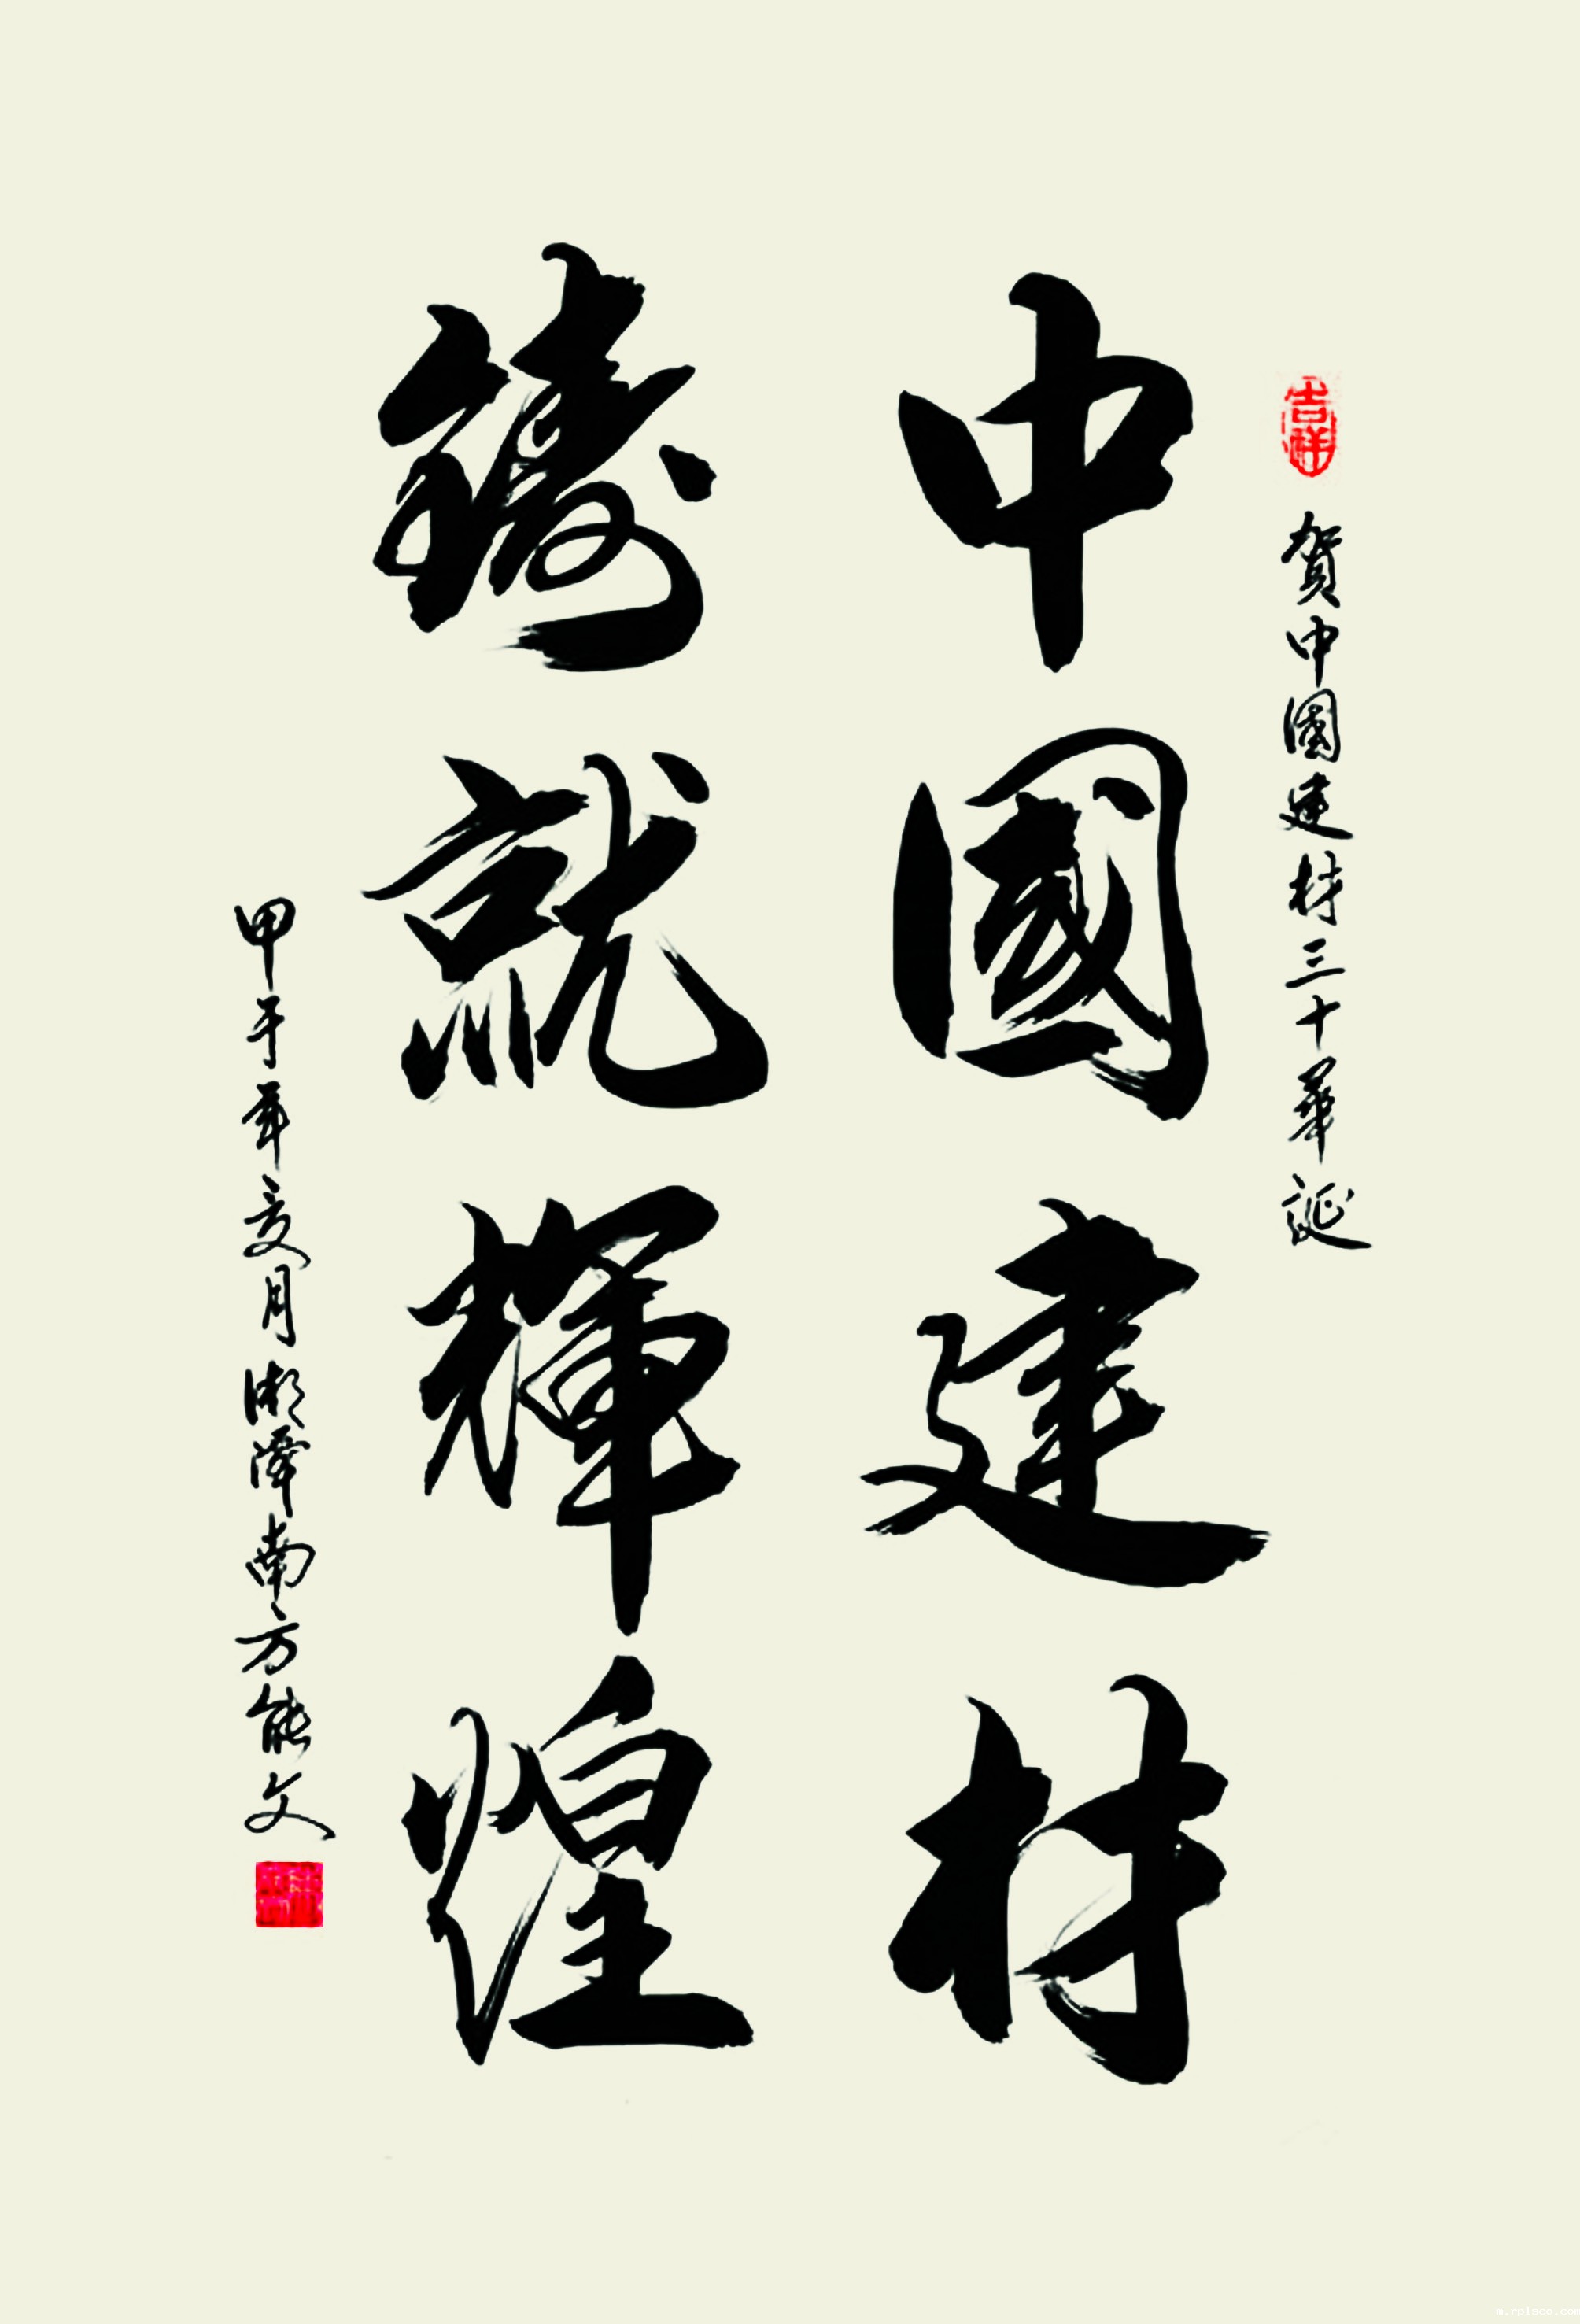 吉祥
賀中國建材三十華誕
中國建材
鑄就輝煌
甲午年文月湘潭南方熊文
m.rplsco.com